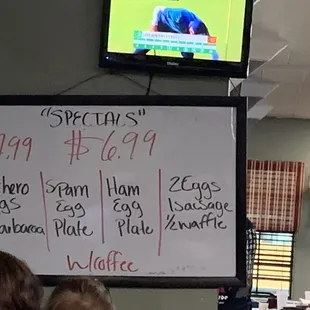 "SPECIALS"
7.99 $6.99
hero
gs
Spam
Egg
Plate
Ham
Egg
Plate
2 Eggs
1 Sausage
½ waffle
w/coffee